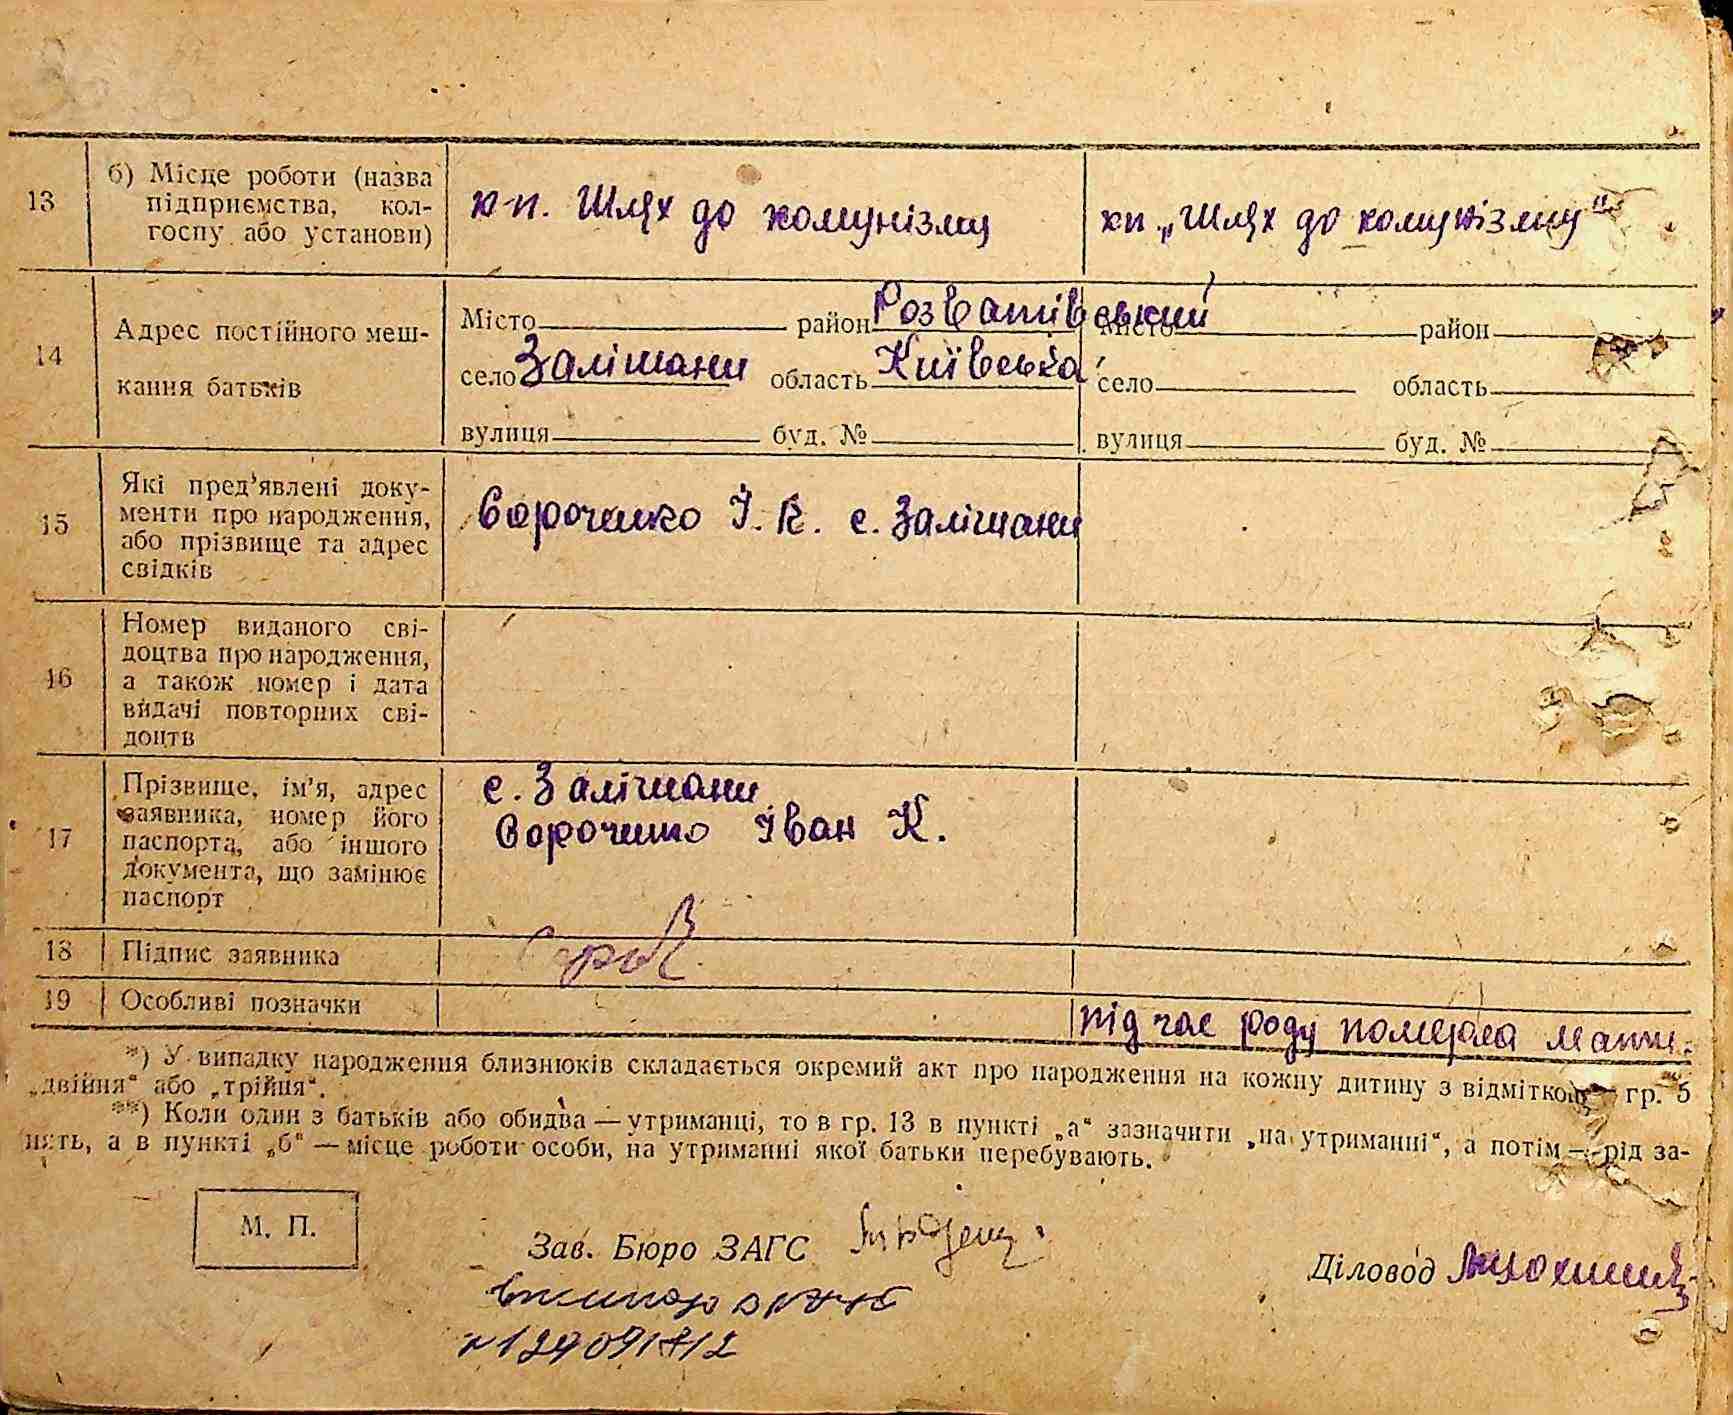 13
б) Місце роботи (назва
підприємства, кол-
госпу або установи)
к-п. Шлях до комунізму
кп „Шлях до комунізму"
14
Адрес постійного меш-
кання батьків
Місто район Розважівський
село Залішани область Київська
вулиця буд. №
Місто район
село область
вулиця буд. №
15
Які пред'явлені доку-
менти про народження,
або прізвище та адрес
свідків
Сороченко І. К. с. Залішани
16
Номер виданого сві-
доцтва про народження,
а також номер і дата
видачі повторних сві-
доцтв
17
Прізвище, ім'я, адрес
заявника, номер його
паспорта, або іншого
документа, що замінює
паспорт
с. Залішани
Сороченко Іван К.
18
Підпис заявника
19
Особливі позначки
під час роду померла мати.
*) У випадку народження близнюків складається окремий акт про народження на кожну дитину з відміткою гр. 5
„двійня“ або „трійня“.
**) Коли один з батьків або обидва — утриманці, то в гр. 13 в пункті „а“ зазначити „на утриманні“, а потім — рід за-
нять, а в пункті „б“ — місце роботи особи, на утриманні якої батьки перебувають.
М. П.
Зав. Бюро ЗАГС
Діловод